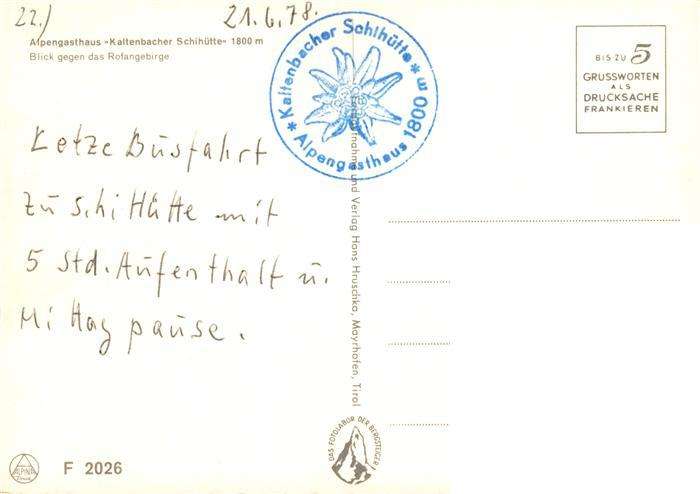 22.)
21.6.78.
Alpengasthaus «Kaltenbacher Schihütte» 1800 m
Blick gegen das Rofangebirge
* Kaltenbacher Schihütte *
Alpengasthaus 1800 m
BIS ZU 5
GRUSSWORTEN
ALS
DRUCKSACHE
FRANKIEREN
Letze Busfahrt
zu Schi Hütte mit
5 Std. Aufenthalt u.
Mittag pause.
und Verlag Hans Hruschka, Mayrhofen, Tirol
DAS FOTOLABOR DER BERGSTEIGER
ALPINA
F 2026